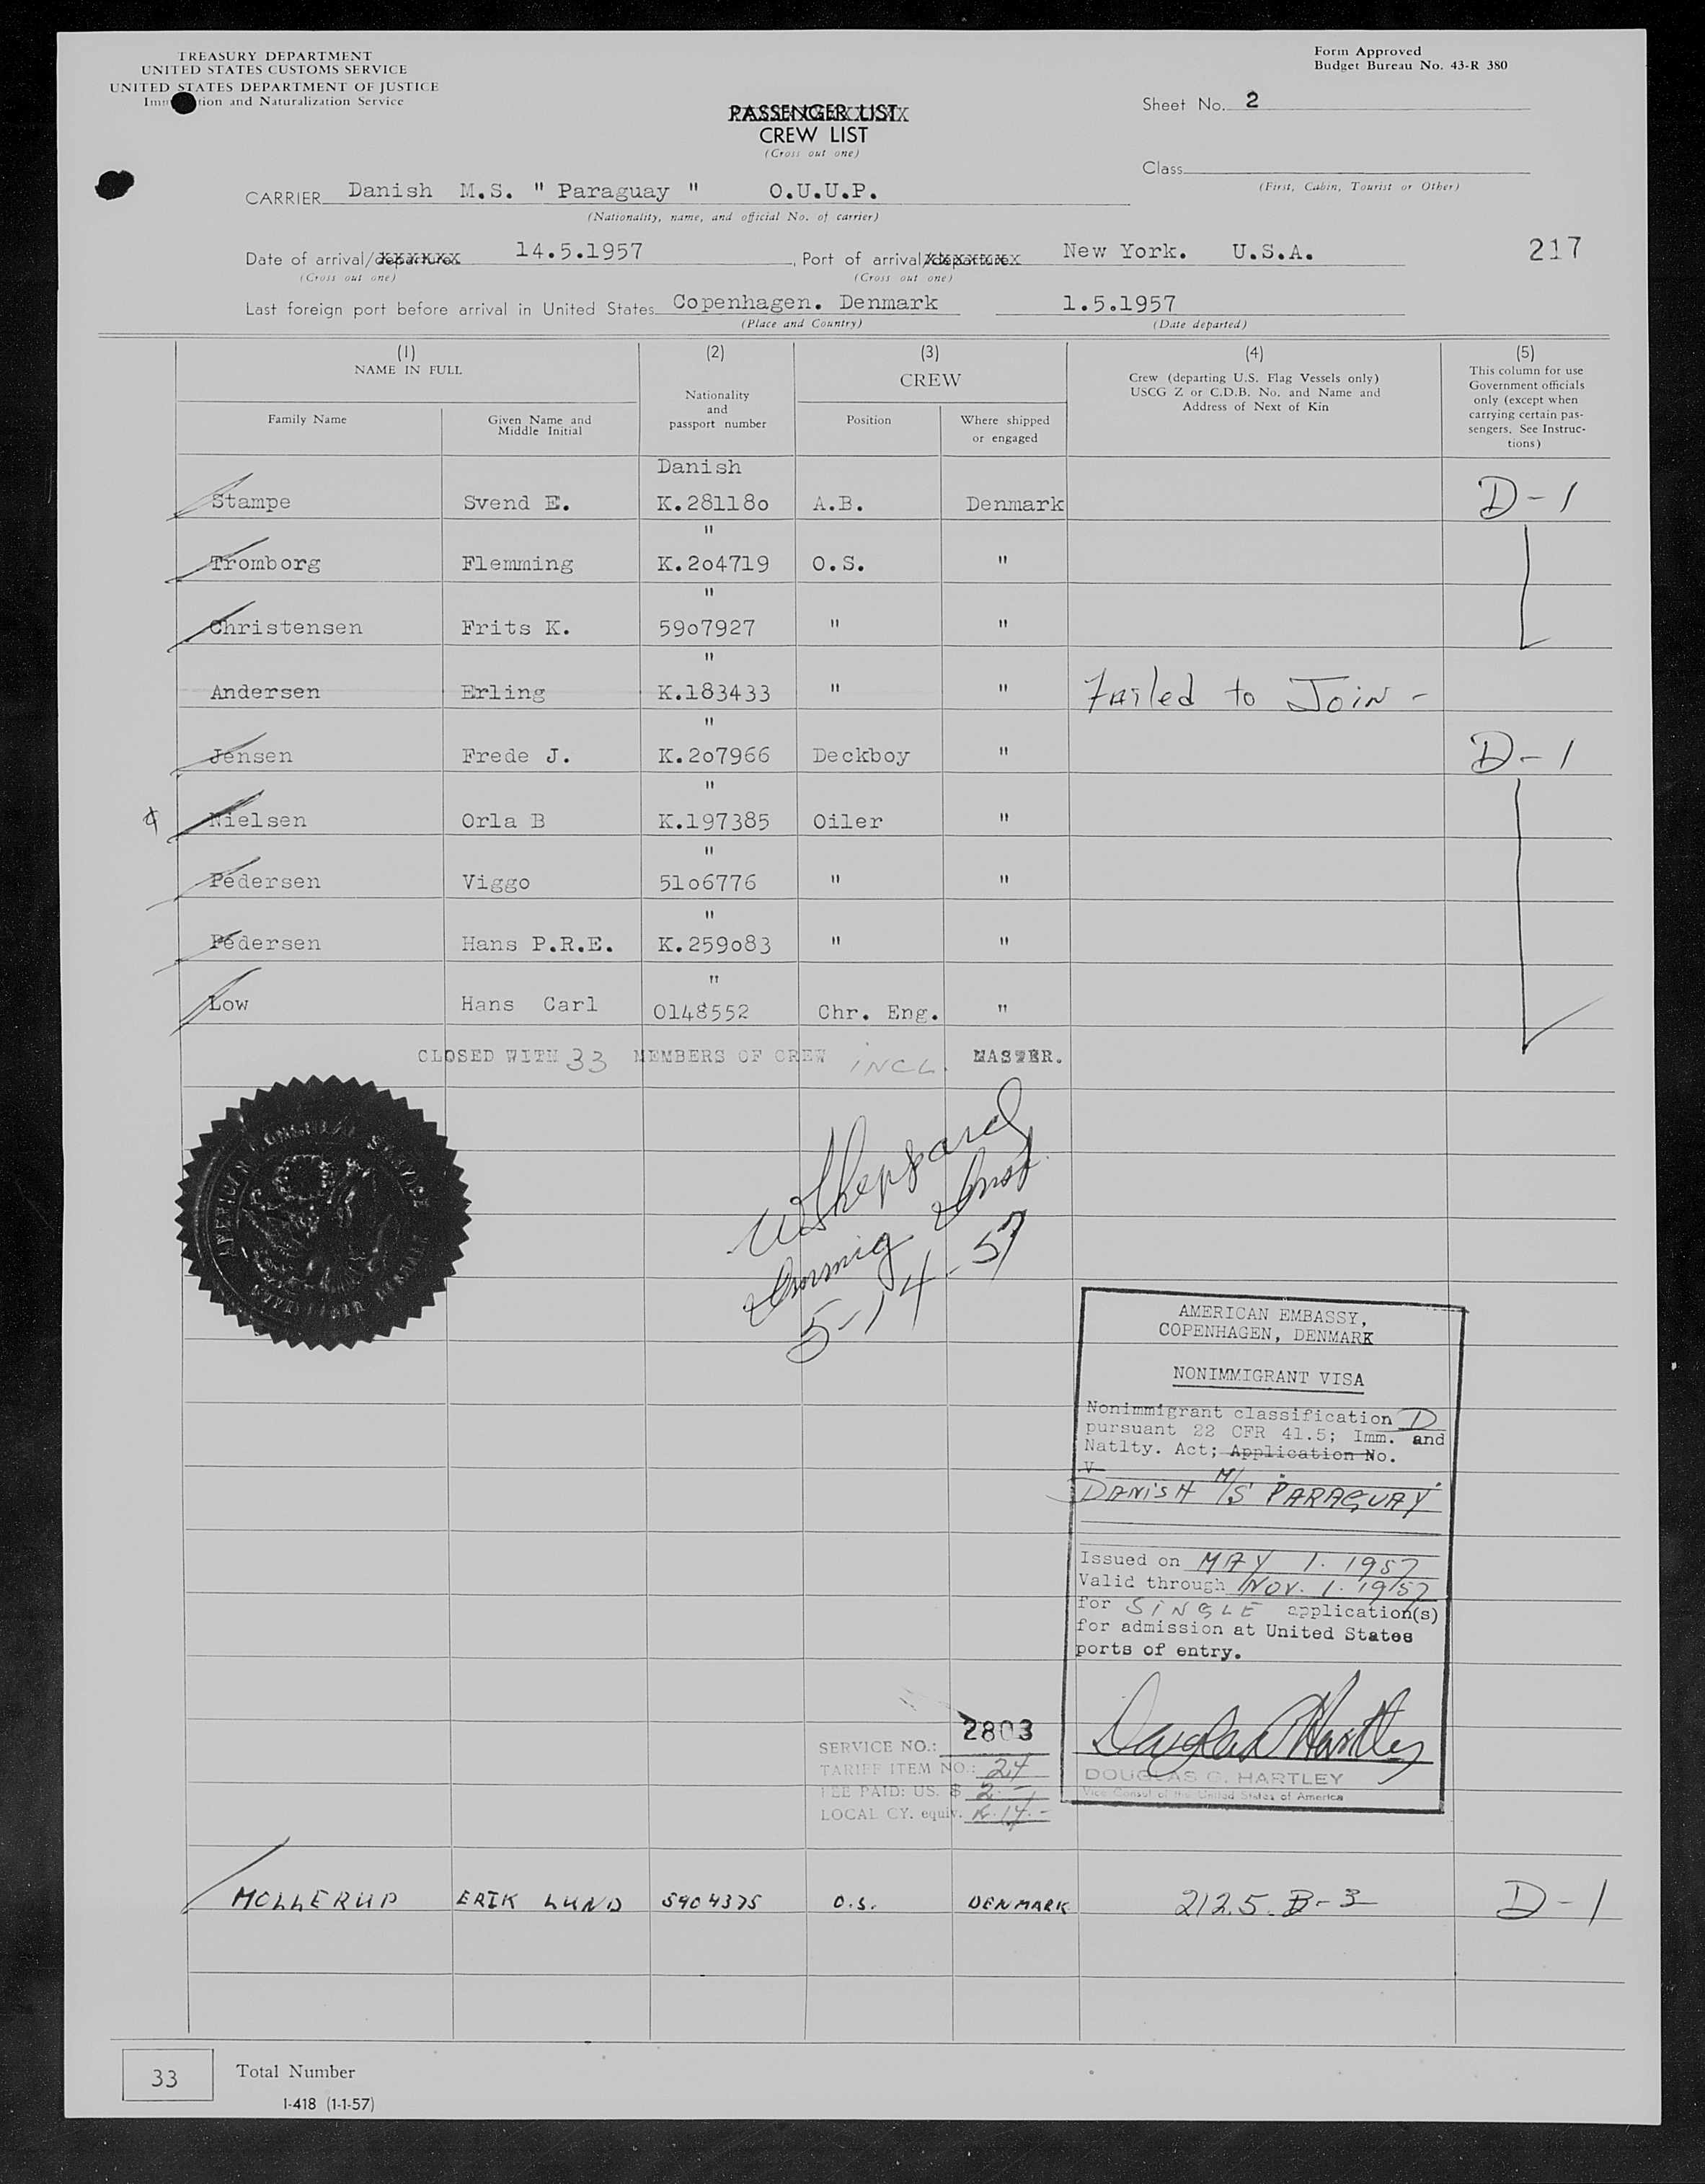 TREASURY DEPARTMENT
UNITED STATES CUSTOMS SERVICE
UNITED STATES DEPARTMENT OF JUSTICE
Imm tion and Naturalization Service
Form Approved
Budget Bureau No. 43-R 380
PASSENGER LIST
CREW LIST
(Cross out one)
Sheet No. 2
Class
(First, Cabin, Tourist or Other)
CARRIER Danish M.S. " Paraguay " O.U.U.P.
(Nationality, name, and official No. of carrier)
Date of arrival/departure 14.5.1957, Port of arrival/departure New York. U.S.A. 217
(Cross out one) (Cross out one)
Last foreign port before arrival in United States Copenhagen. Denmark 1.5.1957
(Place and Country) (Date departed)
(1) (2) (3) (4) (5)
NAME IN FULL
Family Name
Given Name and
Middle Initial
Nationality
and
passport number
CREW
Position
Where shipped
or engaged
Crew (departing U.S. Flag Vessels only)
USCG Z or C.D.B. No. and Name and
Address of Next of Kin
This column for use
Government officials
only (except when
carrying certain pas-
sengers. See Instruc-
tions)
Danish
Stampe Svend E. K.28118o A.B. Denmark D-1
"
Tromborg Flemming K.2o4719 O.S. "
"
Christensen Frits K. 59o7927 " "
"
Andersen Erling K.183433 " " Failed to Join -
"
Jensen Frede J. K.2o7966 Deckboy " D-1
"
Nielsen Orla B K.197385 Oiler "
"
Pedersen Viggo 51o6776 " "
"
Pedersen Hans P.R.E. K.259o83 " "
"
Low Hans Carl 0148552 Chr. Eng. "
CLOSED WITH 33 MEMBERS OF CREW INCL. MASTER.
AMERICAN CONSULAR SERVICE
W Sheppard
Immig Insp.
5-14-57
AMERICAN EMBASSY,
COPENHAGEN, DENMARK
NONIMMIGRANT VISA
Nonimmigrant classification D
pursuant 22 CFR 41.5; Imm. and
Natlty. Act; Application No.
V
DANISH M/S "PARAGUAY"
Issued on MAY 1. 1957
Valid through NOV. 1. 1957
for SINGLE application(s)
for admission at United States
ports of entry.
Douglas G Hartley
DOUGLAS G. HARTLEY
Vice Consul of the United States of America
SERVICE NO.: 2803
TARIFF ITEM NO.: 24
FEE PAID: US. $ 2.-
LOCAL CY. equiv. K.14.-
MOLLERUP ERIK LUND 5904375 O.S. DENMARK 212.5.B-3 D-1
33 Total Number
I-418 (1-1-57)